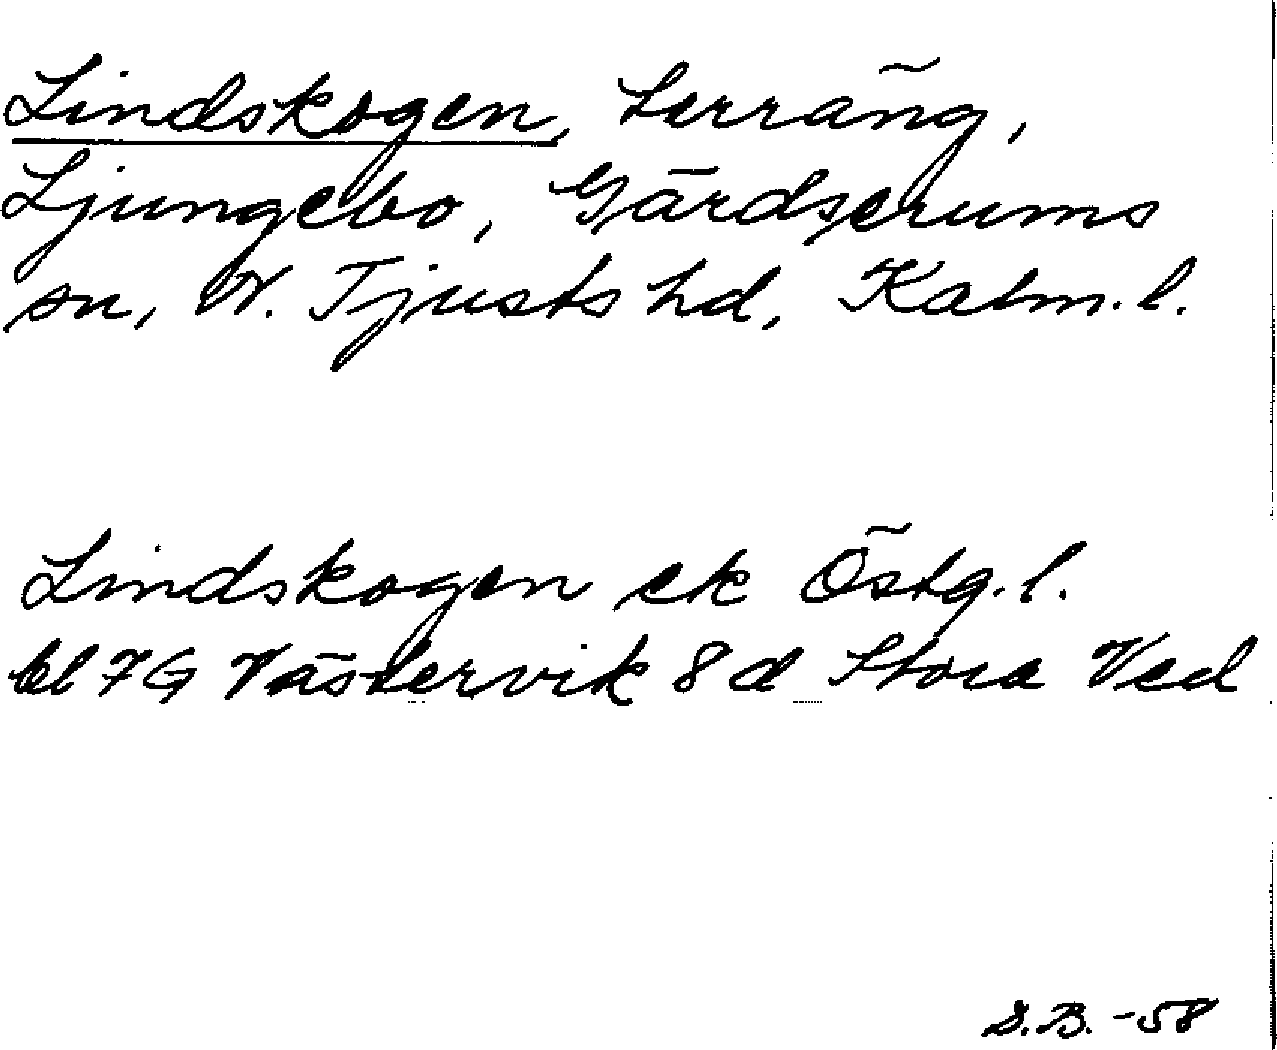 Lindskogen, terräng,
Ljungebo, Gärdserums
sn, N. Tjusts hd, Kalm. l.
Lindskogen ek Östg. l.
bl 7G Västervik 8 d Stora Ved
S.B. -58